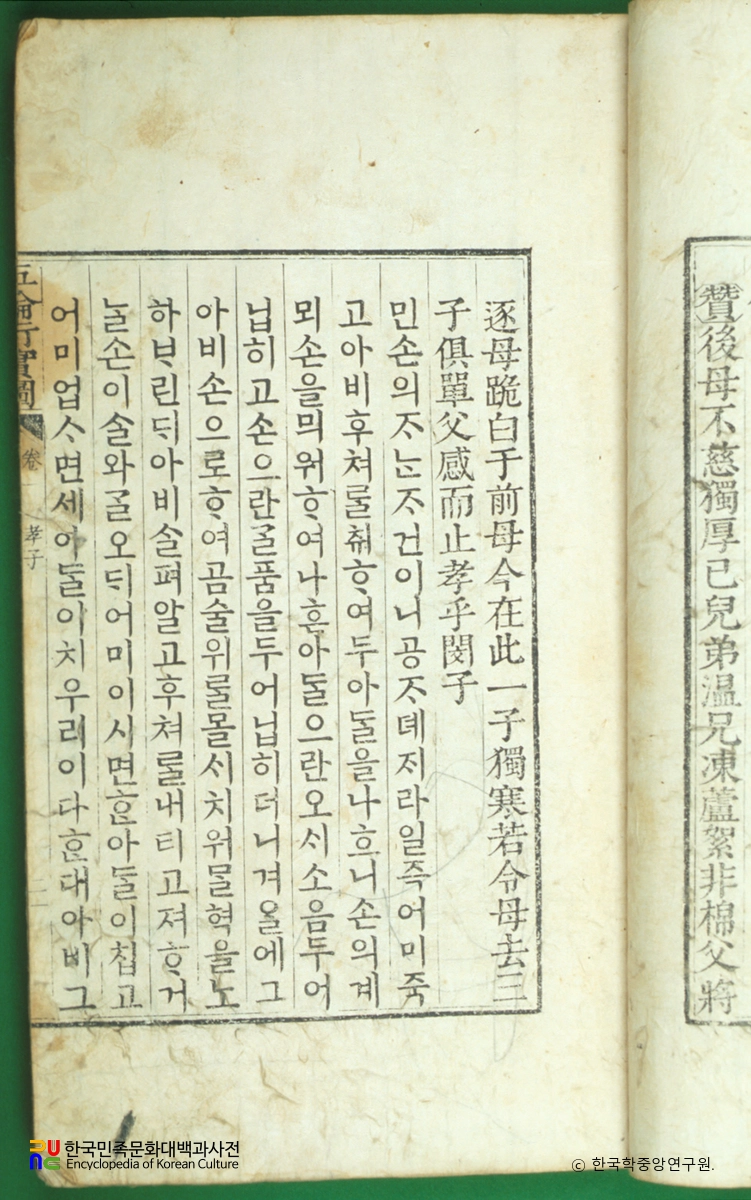 贊後母不慈獨厚己兒弟溫兄凍蘆絮非棉父將
逐母跪白于前母今在此一子獨寒若令母去三
子俱單父感而止孝乎閔子
민손의ᄌᆞᄂᆞᆫᄌᆞ건이니공ᄌᆞ뎨지라일즉어미죽
고아비후쳐ᄅᆞᆯ취ᄒᆞ여두아ᄃᆞᆯ을나흐니손의계
뫼손을믜워ᄒᆞ여나흔아ᄃᆞᆯ으란오시소음두어
닙히고손으란ᄀᆞᆯ품을두어닙히더니겨ᄋᆞᆯ에그
아비손으로ᄒᆞ여곰술위ᄅᆞᆯ몰시치워ᄆᆞᆯ혁을노
하ᄇᆞ린ᄃᆡ아비ᄉᆞᆯ펴알고후쳐ᄅᆞᆯ내티고져ᄒᆞ거
ᄂᆞᆯ손이ᄉᆞᆯ와ᄀᆞᆯ오ᄃᆡ어미이시면ᄒᆞᆫ아ᄃᆞᆯ이칩고
어미업ᄉᆞ면세아ᄃᆞᆯ이치우리이다ᄒᆞᆫ대아비그
五倫行實圖 卷 孝子 二
한국민족문화대백과사전
Encyclopedia of Korean Culture
© 한국학중앙연구원.